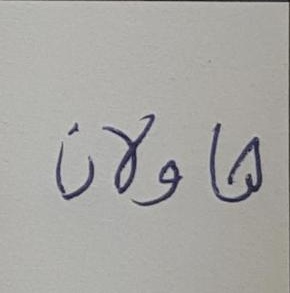 هاولانا